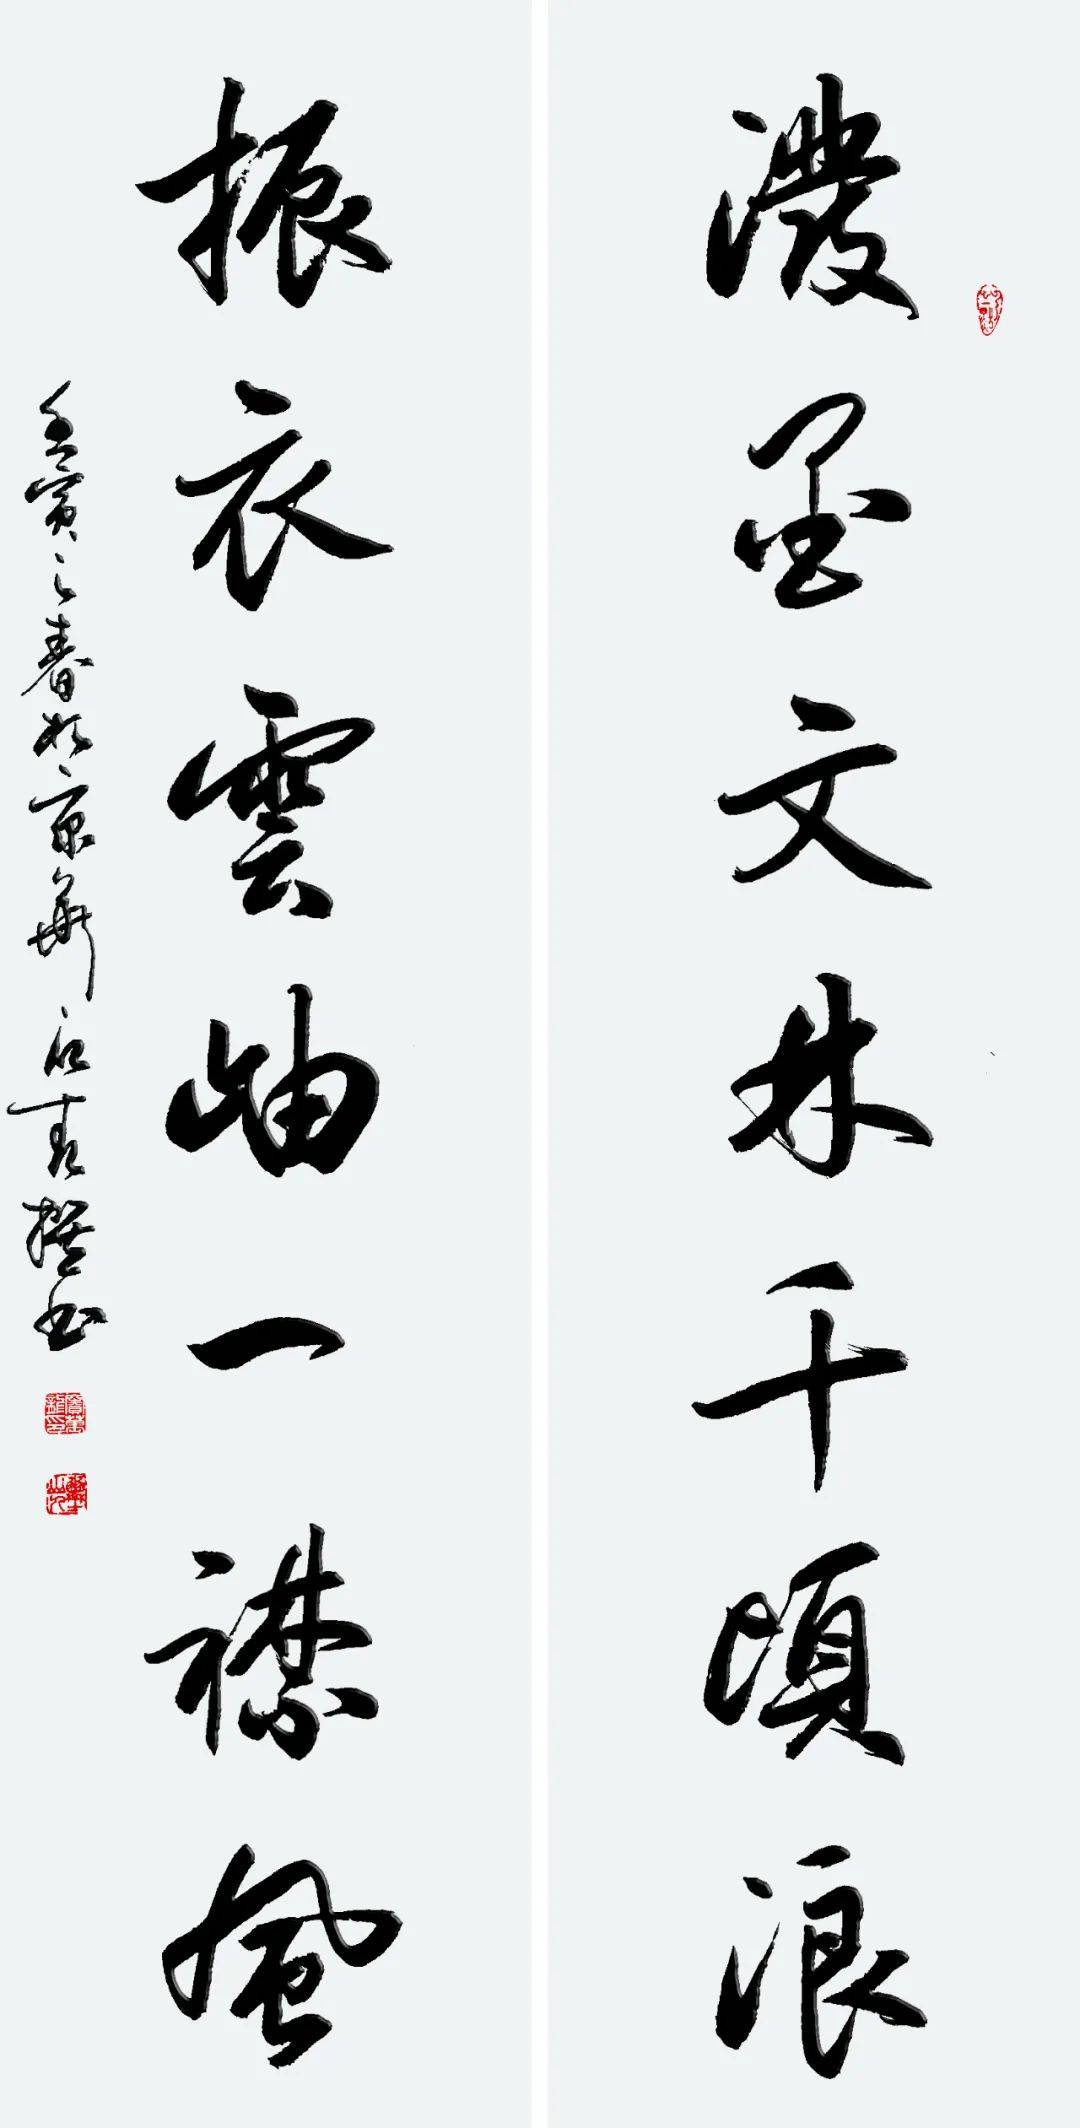 潑墨文林千頃浪
振衣雲岫一襟風
壬寅之春於京華 撰书